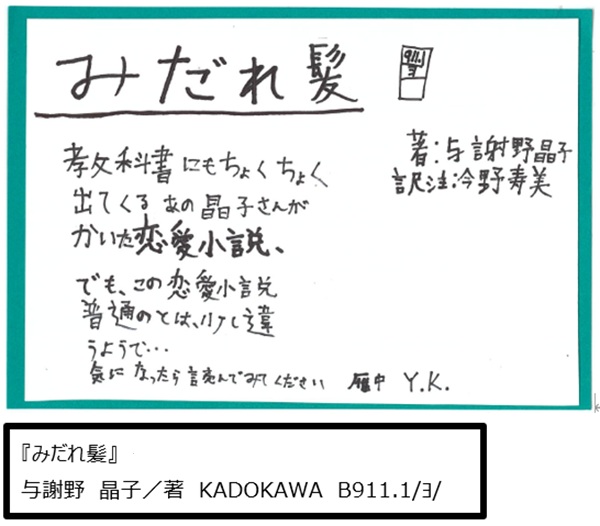 みだれ髪
911.1
ヨ
著:与謝野晶子
訳注:今野寿美
教科書にもちょくちょく
出てくるあの晶子さんが
かいた恋愛小説、
でも、この恋愛小説
普通のとは、少し違
うようで…
気になったら読んでみてください 雁中 Y.K.
『みだれ髪』
与謝野 晶子／著 KADOKAWA B911.1/ヨ/